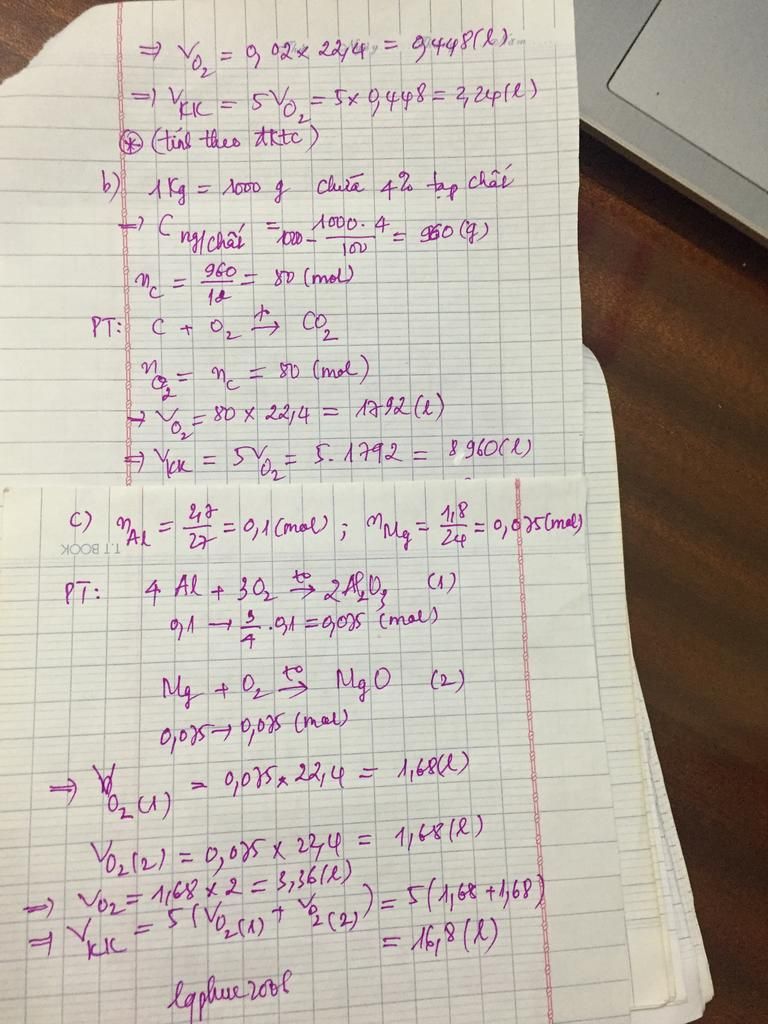 ⇒ V_O₂ = 0,02 × 22,4 = 0,448 (l)
⇒ V_KK = 5V_O₂ = 5 × 0,448 = 2,24 (l)
⊛ (tính theo đktc)
b) 1 Kg = 1000 g chứa 4% tạp chất
→ C ng/chất = 1000 - 1000.4/100 = 960 (g)
n_C = 960/12 = 80 (mol)
PT: C + O₂ →(t°) CO₂
n_O₂ = n_C = 80 (mol)
→ V_O₂ = 80 × 22,4 = 1792 (l)
⇒ V_KK = 5V_O₂ = 5.1792 = 8960 (l)
c) n_Al = 2,7/27 = 0,1 (mol) ; n_Mg = 1,8/24 = 0,075 (mol)
T.T BOOK
PT: 4Al + 3O₂ →(t°) 2Al₂O₃ (1)
0,1 → 3/4 . 0,1 = 0,075 (mol)
Mg + O₂ →(t°) MgO (2)
0,075 → 0,075 (mol)
⇒ V_O₂(1) = 0,075 × 22,4 = 1,68 (l)
V_O₂(2) = 0,075 × 22,4 = 1,68 (l)
⇒ V_O₂ = 1,68 × 2 = 3,36 (l)
⇒ V_KK = 5(V_O₂(1) + V_O₂(2)) = 5(1,68 + 1,68)
= 16,8 (l)
lgphuc2001